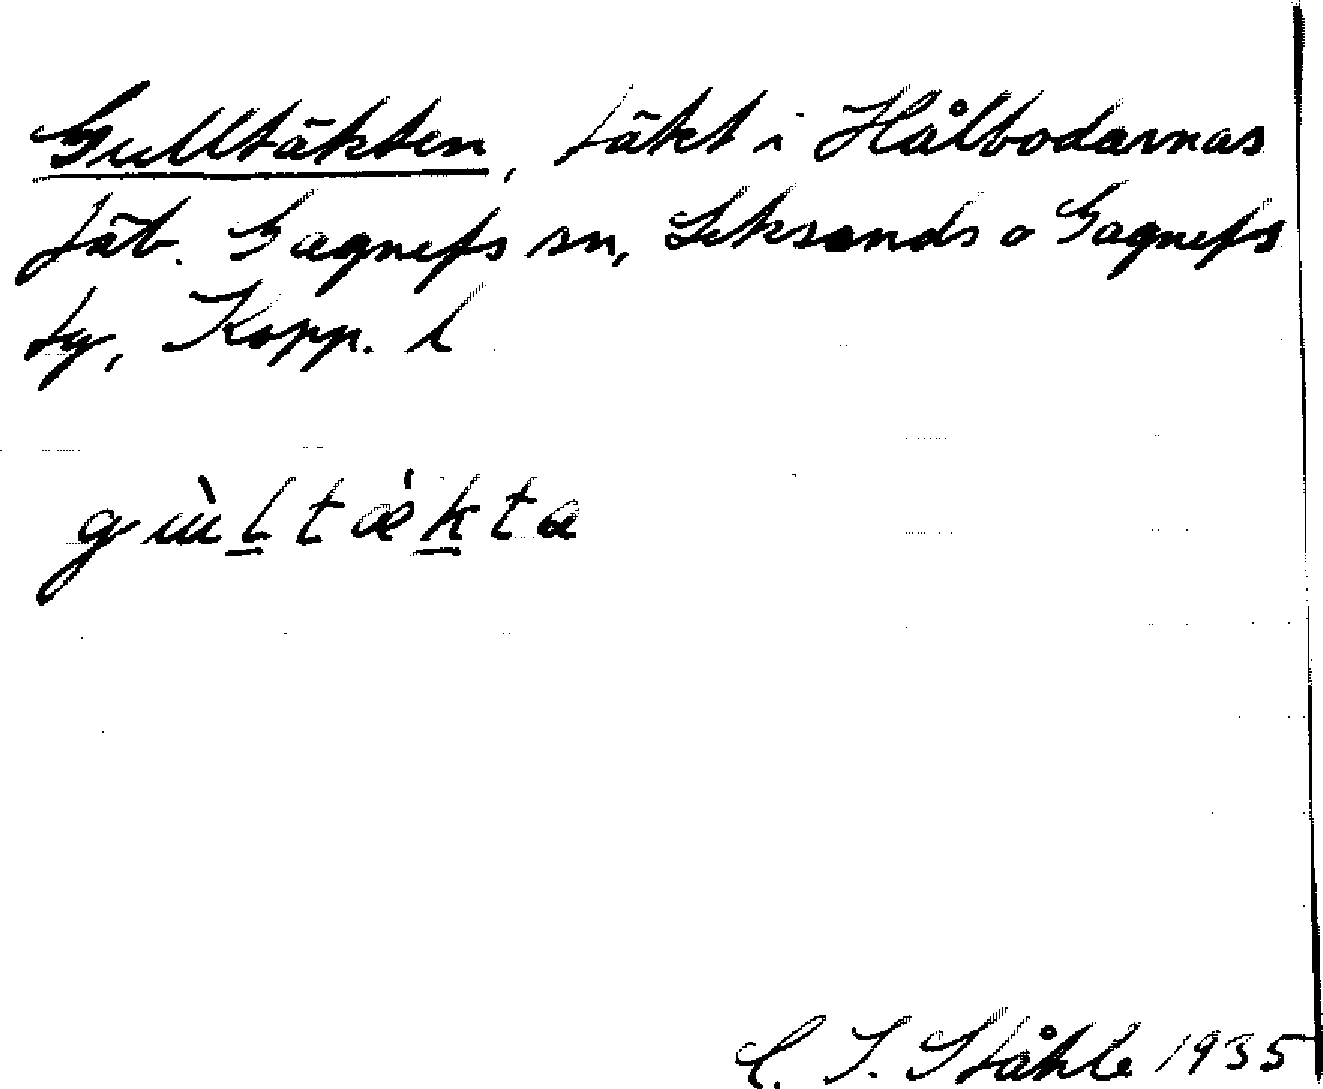 Gulltäkten, täkt i Hålbodarnas
fäb. Gagnefs sn, Leksands o Gagnefs
tg, Kopp. l
gùltǽkta
C. I. Ståhle 1935